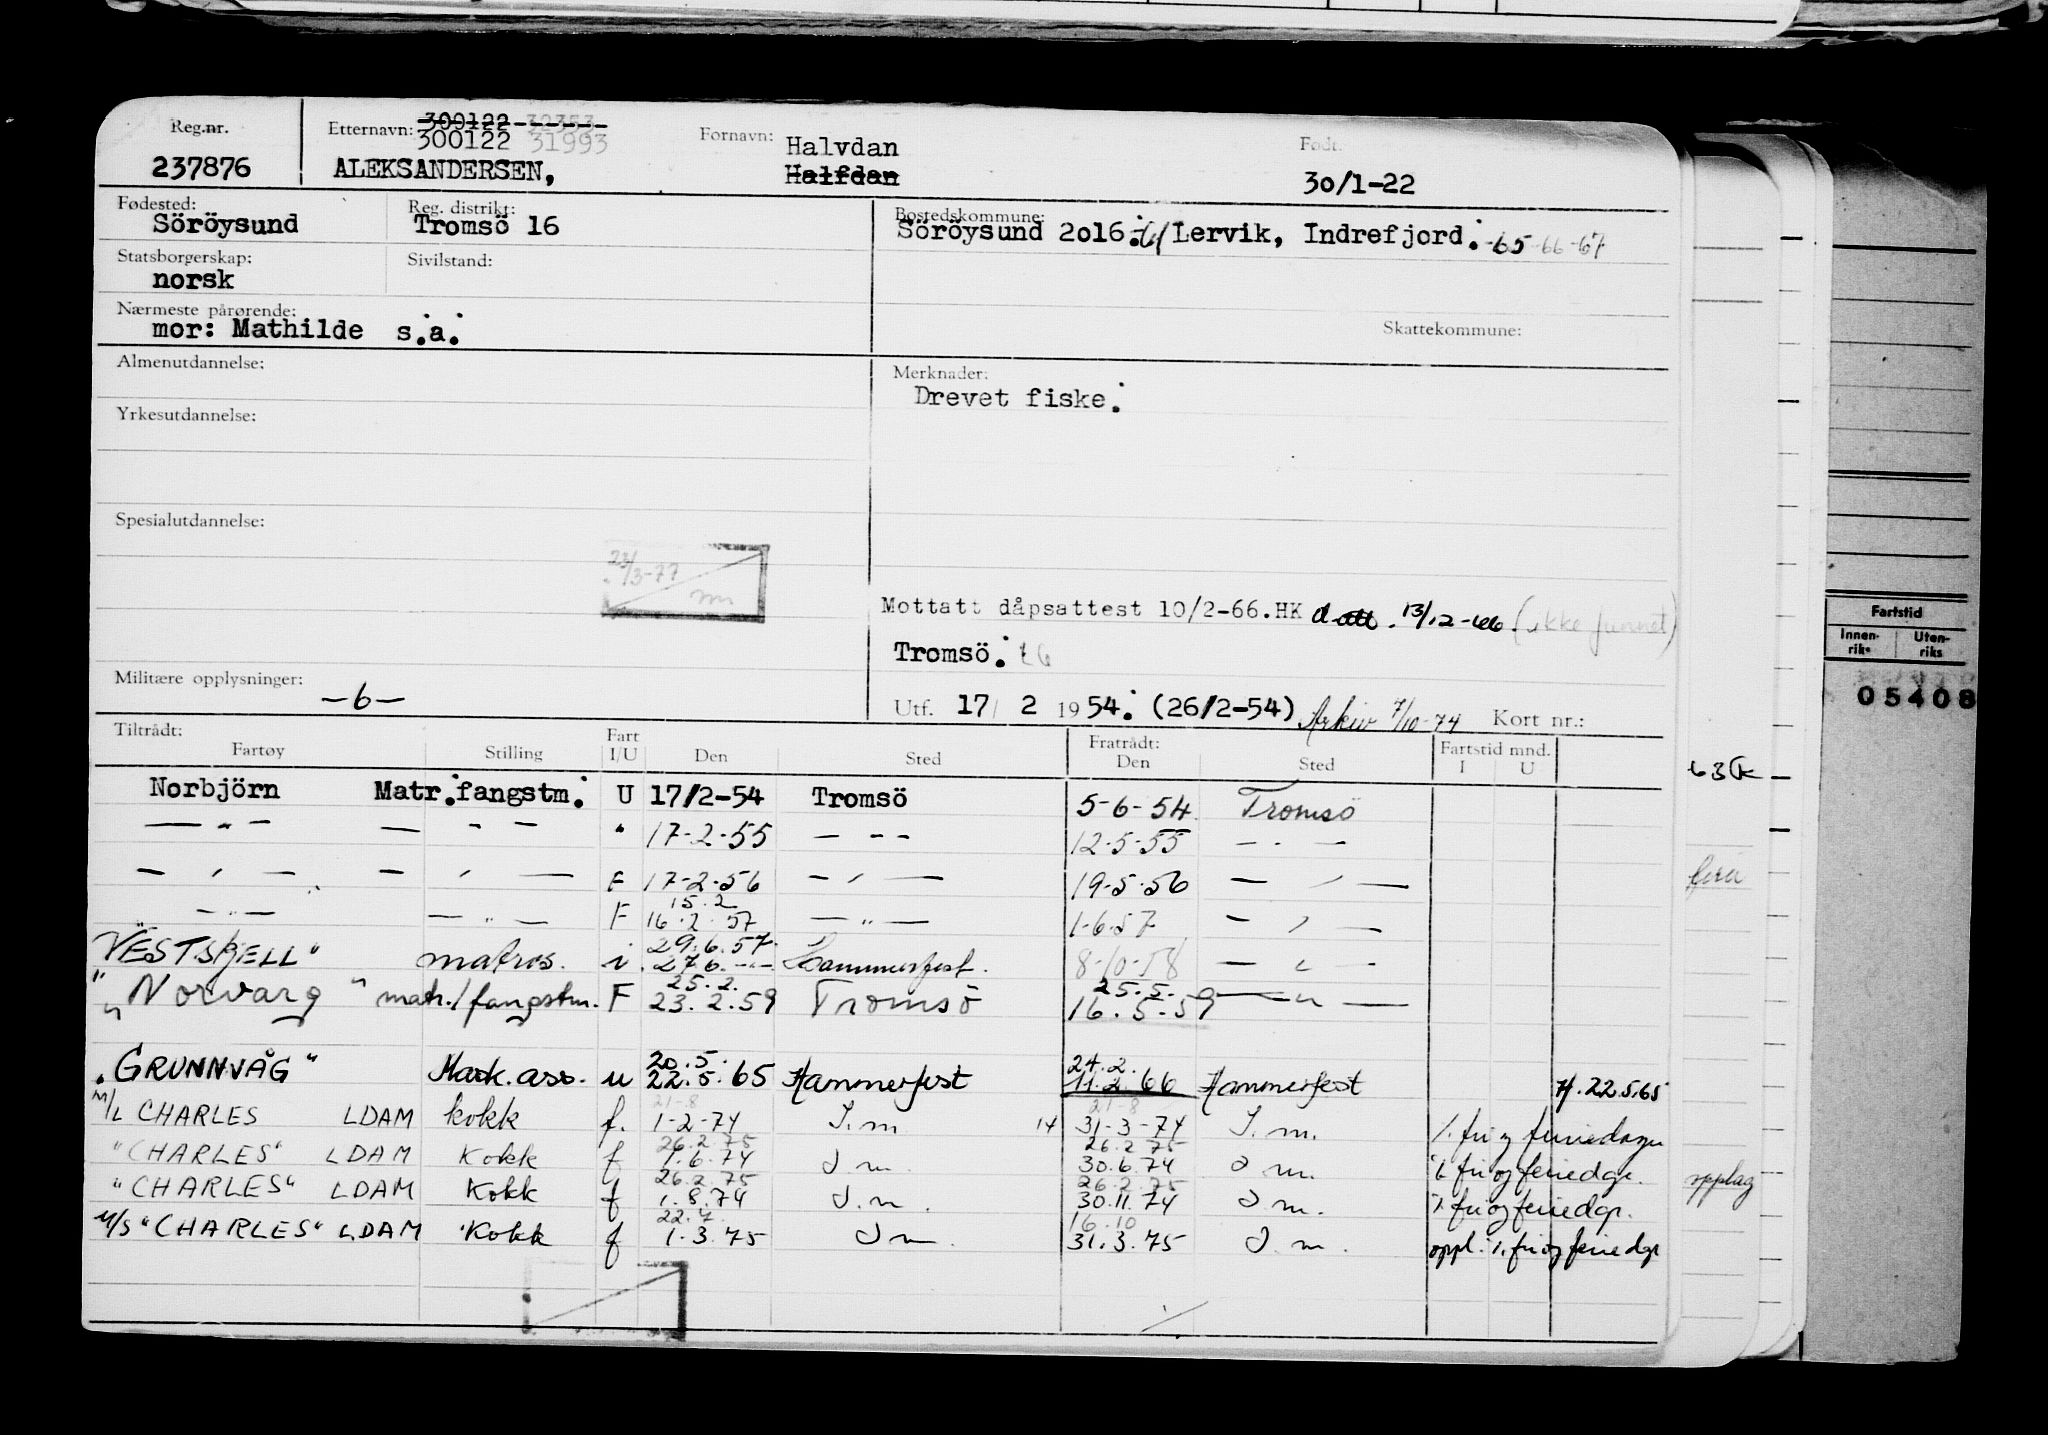 Reg.nr. Etternavn: 300122 32353 Fornavn: Halvdan Født.
237876 300122 31993
ALEKSANDERSEN, Halfdan 30/1-22
Fødested: Reg. distrikt: Bostedskommune:
Söröysund Tromsö 16 Söröysund 2016. Lervik, Indrefjord. -65-66-67
Statsborgerskap: Sivilstand:
norsk
Nærmeste pårørende: Skattekommune:
mor: Mathilde s.a.
Almenutdannelse: Merknader:
Drevet fiske.
Yrkesutdannelse:
Spesialutdannelse:
23/3-77
Mottatt dåpsattest 10/2-66.HK 13/12-66 (ikke funnet)
Tromsö.
Militære opplysninger: -6-
Utf. 17/ 2 1954. (26/2-54) Arkiv 7/10-74 Kort nr.:
Tiltrådt: Fart Fratrådt: Fartstid mnd.
Fartøy Stilling I/U Den Sted Den Sted I U
Norbjörn Matr.fangstm. U 17/2-54 Tromsö 5-6-54 Tromsö
— " — — " — " 17-2-55 — " — 12-5-55 — " —
— " — — " — F 17-2-56 — " — 19-5-56 — " —
15.2
— " — — " — F 16.2.57 — " — 1-6-57 — " —
29.6.57
"VESTSKJELL" matros. i 27.6.-"- Hammerfest. 8-10-58 — " —
25.2. 25.5.
"Norvarg" matr./fangstm. F 23.2.59 Tromsö 16.5.59 — " —
20.5. 24.2.
"GRUNNVÅG" Mask.ass. u 22.5.65 Hammerfest 11.2.66 Hammerfest 22.5.65
21-8 21-8
M/L CHARLES LDAM kokk f. 1-2-74 I.m 14 31-3-74 I.m. %. fri og feriedager
26.2.75 26.2.75
"CHARLES" LDAM Kokk f 1.6.74 I m. 30.6.74 I m. % fri og feriedgr.
26.2.75 26.2.75
"CHARLES" LDAM Kokk f 1.8.74 I.m. 30.11.74 I m. % fri og feriedgr.
22.7 16.10
M/S "CHARLES" LDAM Kokk f 1.3.75 I m. 31.3.75 I. m. oppl. %. fri og feriedgr
opplag
Fartstid
Innen-riks Uten-riks
05408